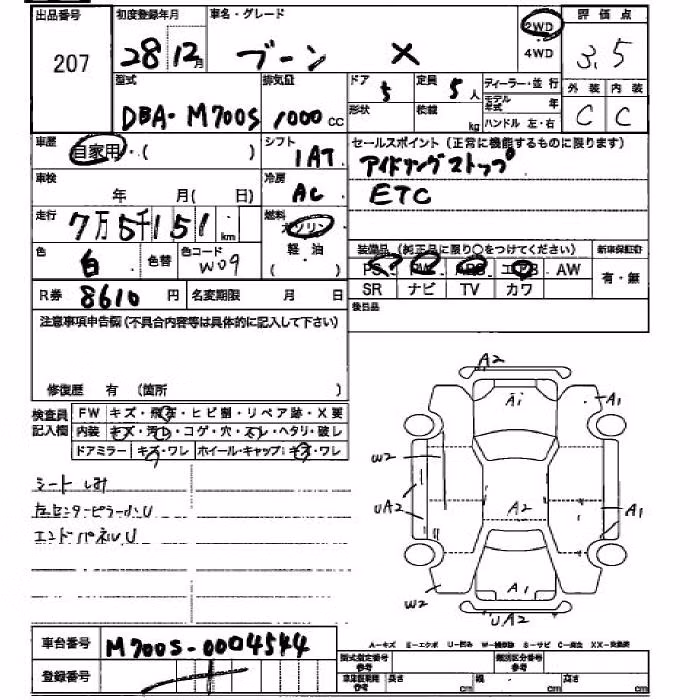 出品番号 初度登録年月 車名・グレード 2WD 4WD 評価点
207 28 12月 ブーン X 3.5
型式 排気量 ドア 5 定員 5人 ディーラー・並行 外装 内装
DBA-M700S 1000cc 形状 積載 kg モデル年式 年 C C
ハンドル 左・右
車歴 自家用・( ) シフト 1AT セールスポイント(正常に機能するものに限ります)
アイドリングストップ
車検 年 月( 日) 冷房 AC ETC
走行 7万5千151km 燃料 ガソリン
軽・油
( )
色 白 色替 色コード W09 装備品(純正品に限り○をつけてください) 新車保証書
PS PW ABS エアB AW 有・無
R券 8610円 名変期限 月 日 SR ナビ TV カワ
注意事項申告欄(不具合内容等は具体的に記入して下さい) 後日品
修復歴 有 (箇所 )
検査員記入欄 FW キズ・飛石・ヒビ割・リペア跡・X要
内装 キズ・汚レ・コゲ・穴・スレ・ヘタリ・破レ
ドアミラー キズ・ワレ ホイール・キャップ:キズ・ワレ
シート しみ
左センターピラー小U
エンドパネルU
A2
A1 A1
W2
UA2 A2 A1
A1
W2 UA2
車台番号 M700S-0004544
A-キズ E-エクボ U-凹み W-補修跡 S-サビ C-腐食 XX-交換済
登録番号
型式指定番号 参考 類別区分番号 参考
車庫証明用 参考 長さ cm 幅 cm 高さ cm